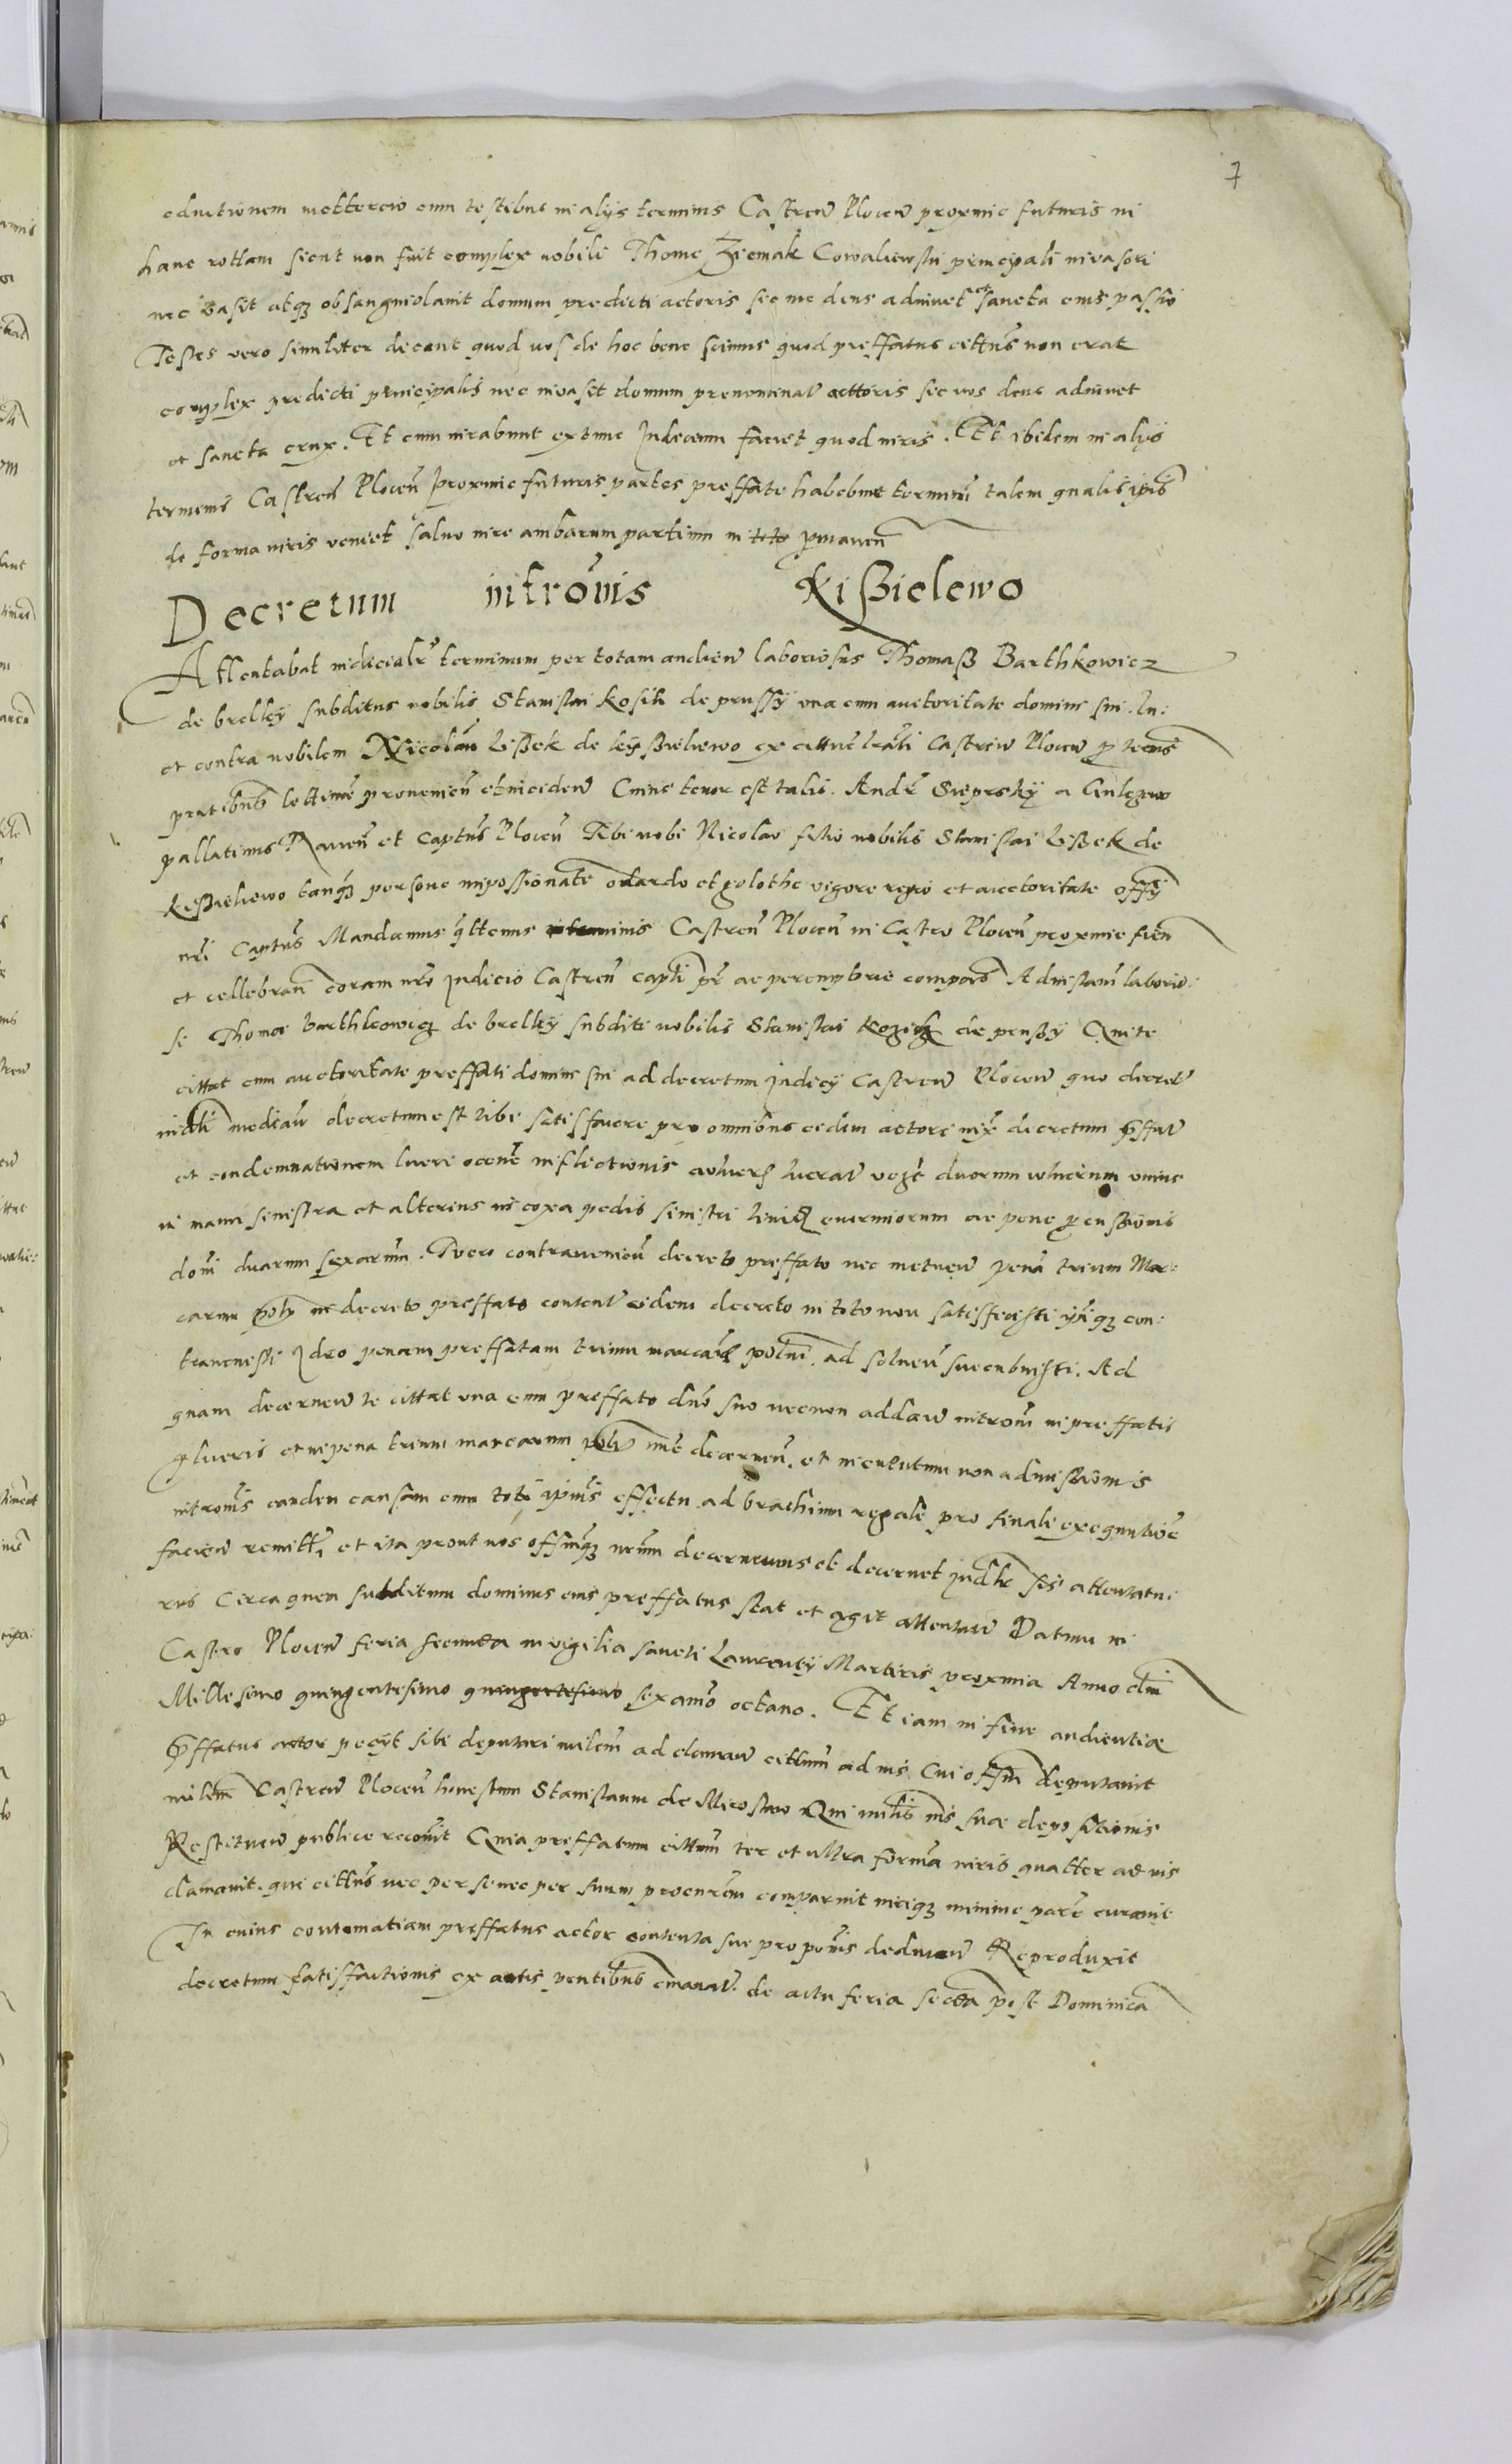 7
eductionem mettercio cum testibus in alijs terminis Castren Plocen proxime futuris in
hanc rottam sicut non fuit complex nobili Thome Ziemak Cowaliewski principali invasori
nec vasit atq3 obsangwiolavit domum predicti actoris sic me deus adiuvet et sancta eius passio
Testes vero similiter dicant quod nos de hoc bene scimus quod preffatus cittus non erat
complex predicti principalis nec invasit domum prenominat acttoris sic nos deus adiuvet
et sancta crux. Et cum iurabunt extunc Judicium faciet quod iuris. Et ibidem in alijs
terminis Castren Plocen proxime futuris partes preffate habebunt terminu talem qualis ipis
de forma iuris veniet salvo iure ambarum partium in toto pmanen
Decretum intromis Kißielewo
Attentabat iudicialr terminum per totam audien laboriosus Thomaß Barthkowicz
de brelkÿ subditus nobilis Stanislai Kosik de prussÿ una cum auctoritate domini sui In:
et contra nobilem Nicolau Lißek de keÿßieliewo ex cittne lrali Castren Plocen p tecus
prntibus lettime provenien et inceden Cuius tenor est talis. Andr Sieprskÿ a Gulczewo
pallatinus Raven et Captus Plocen Tibi nobi Nicolao filio nobilis Stanislai Lißek de
Keßieliewo tanq3 persone inpossionate odardo et golothe vigore regio et auctoritate offÿ
nri Captus Mandamus qttenus in terminis Castren Plocen in Castro Plocen proxime fien
et cellebran coram nro Judicio Castren capli pr ac peremptorie compars Ad instam laborio:
si Thomæ barthkowicz de brelkÿ subditi nobilis Stanislai Kozigk de prußÿ Qui te
cittat cum auctoritate preffati domini sui ad decretum Judicÿ Castren Plocen quo decret
median decretum est tibi satisfacere pro omnibus eidem actore iux decretum pffat
et condemnationem lucri inflictionis vulnerum unius
in manu sinistra et alterius in coxa pedis sinistri cruentorum ac pene pcussionis
domi duarum sexarum. Tu vero contraveniens decreto preffato nec metuen pena trium Mar:
carum polij in decreto preffato content eidem decreto in toto non satisfecisti ipiq3 con:
travenisti Ideo penam preffatam trium marcaru polni ad solven succubuisti. Ad
quam decernen te cittat una cum preffato dno suo necnon addaen introm in preffatis
vulneris et in pena trium marcarum decernen. et in eventum non admissionis
intromis eandem causam cum toto ipius effectu ad brachium regale pro finale exequutioe
facien remitti et ita prout nos offmq3 nrum decernemus et decernet sis attentatu:
rus Circa quem subditum dominus eius preffatus stat et agit attentan Datum in
Castro Plocen feria secunda in vigilia sancti Laurentÿ Martiris proxima Anno dni
Millesimo quingentesimo quingentesimo sexamo octavo. Et iam in fine audientiæ
Pffatus actor pecÿt sibi deputari milem ad claman cittum ad ius Cui offm deputavit
milem Castren Plocen honestum Stanislaum de Mirosław Qui milis ius suæ depositionis
Restituen publice recovit Quia preffatum cittum ter et ultra forma iuris quatter ad ius
clamavit. qui cittus nec per se nec per suum procurem comparuit iuriq3 minime parre curavit
In cuius contumatiam preffatus actor contenta sue proponis deducen Reproduxit
decretum satisfactionis ex actis prntibus emanat. de actu feria secda post Dominica